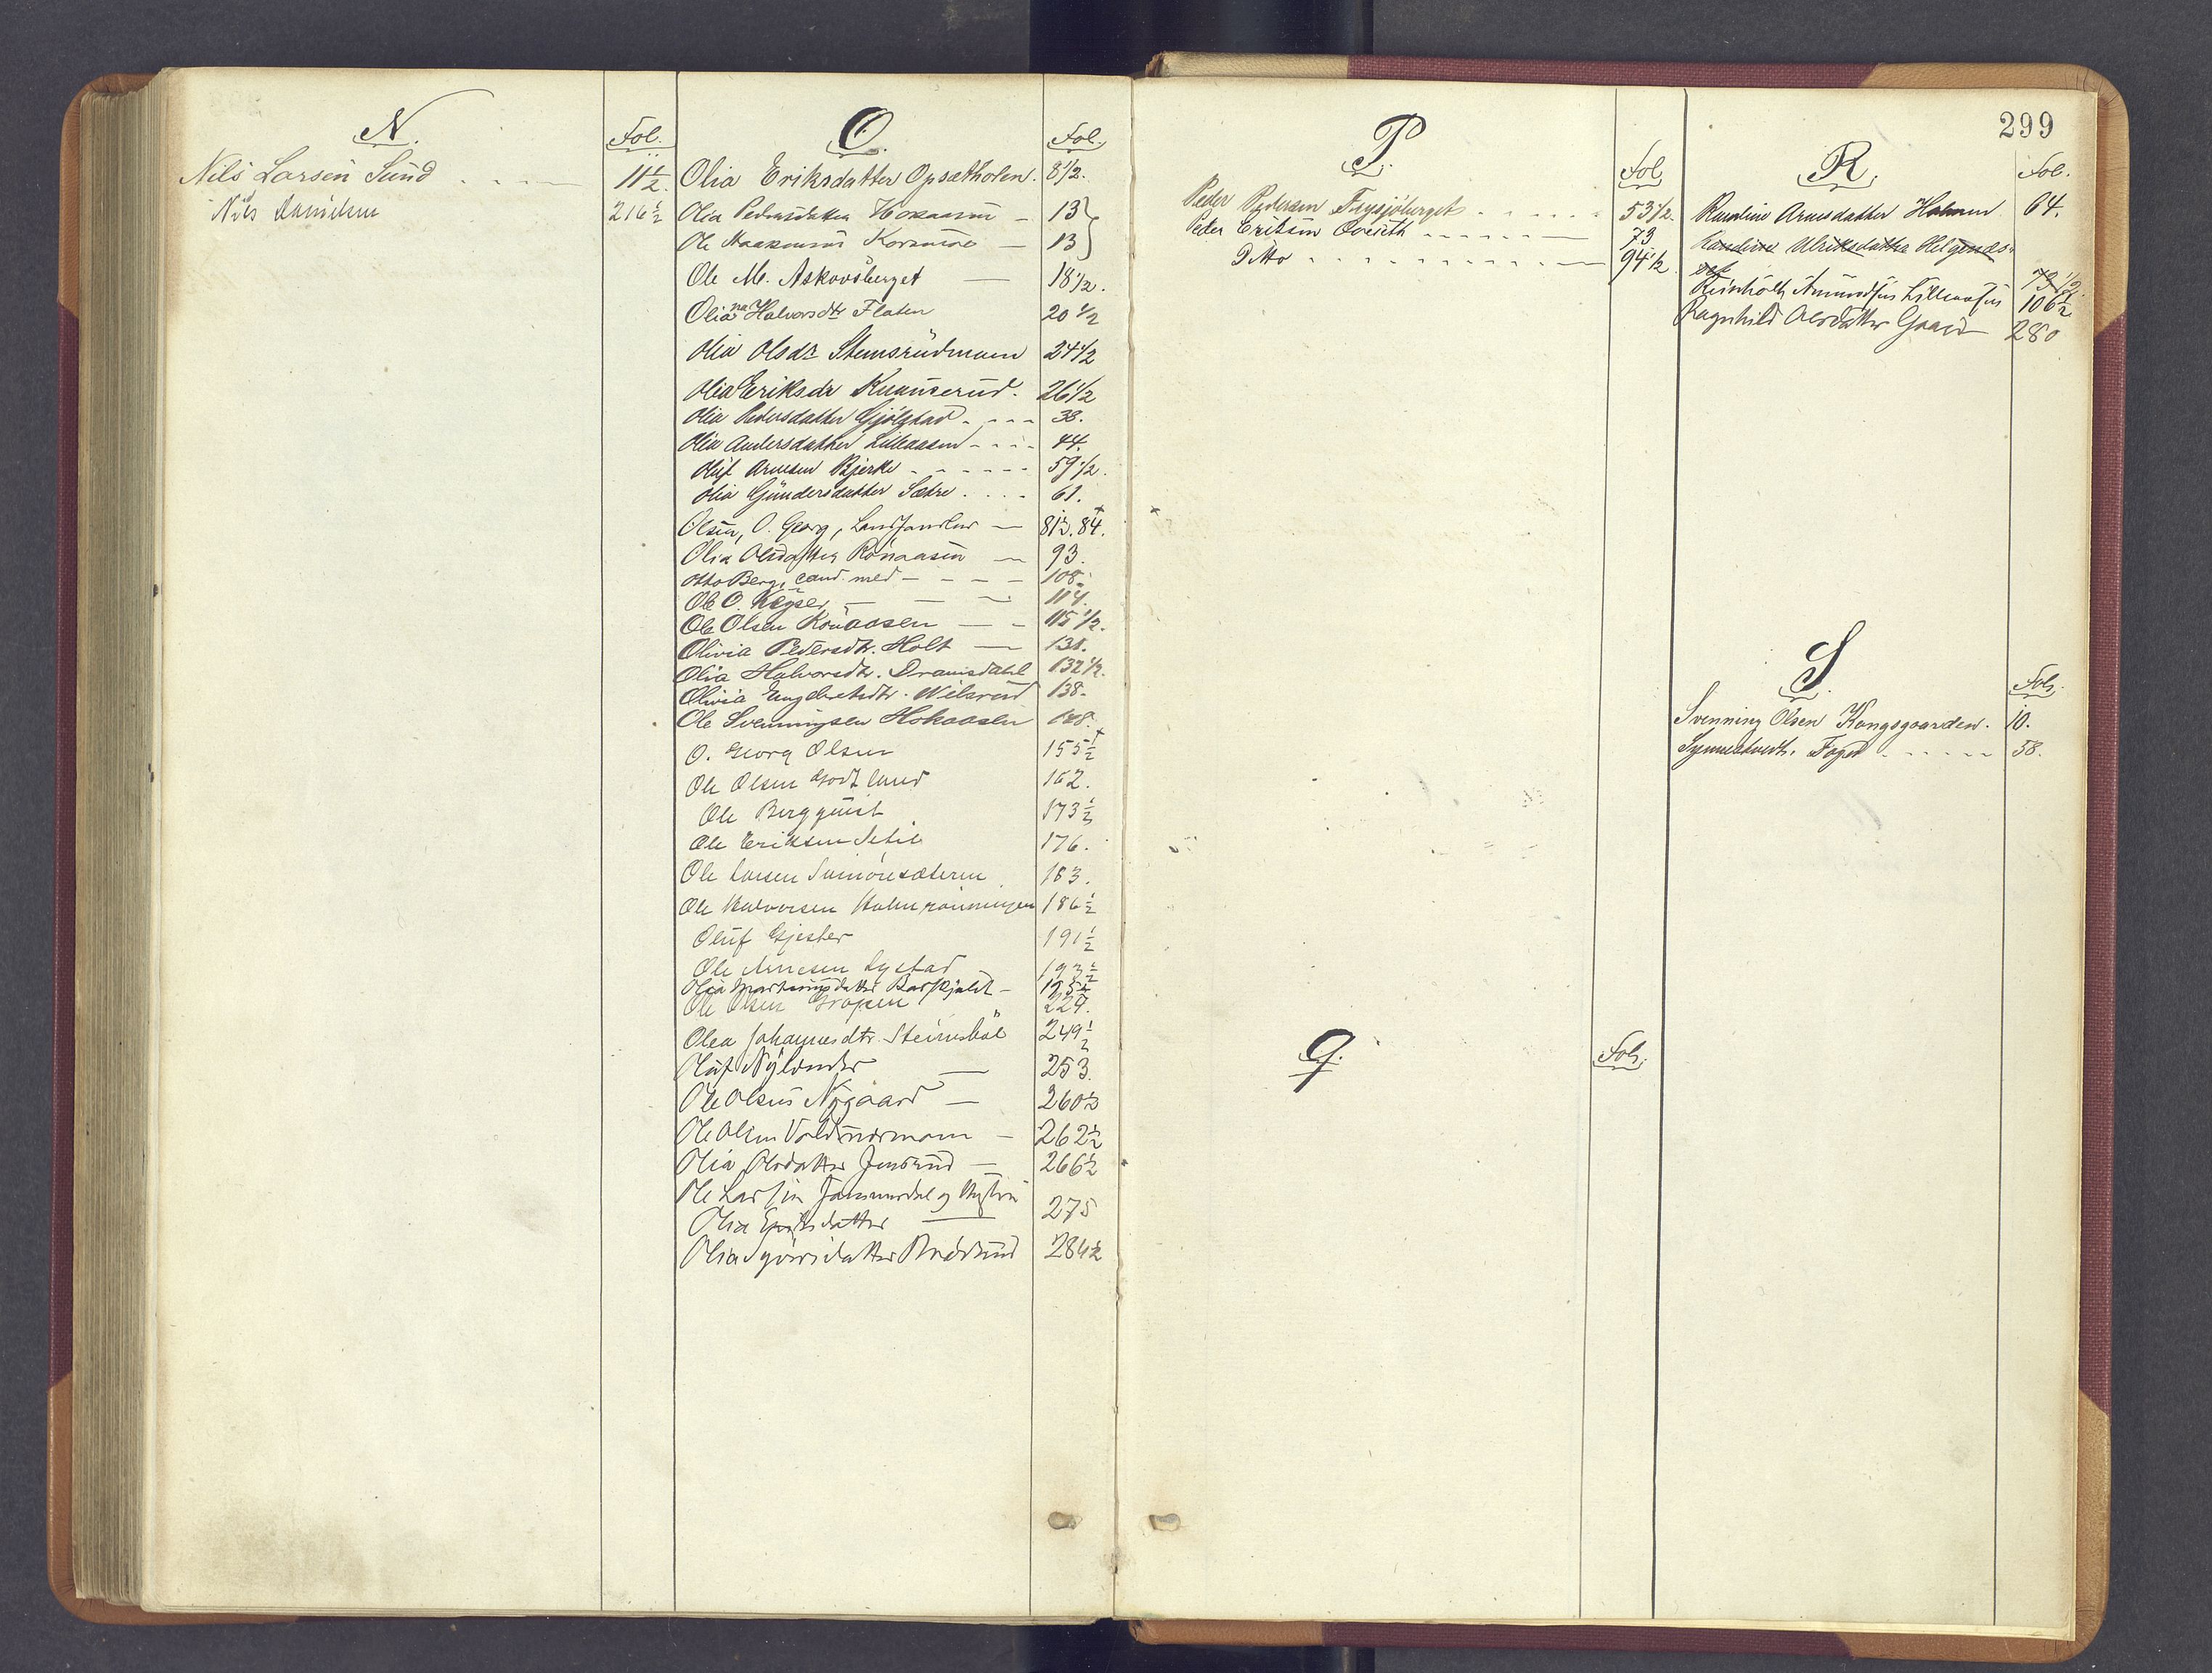 N.
Fol.
Nils Larsen Sund 11 1/2.
Nils Danielsen 216 1/2
O.
Fol.
Olia Eriksdatter Opsætholen. 8 1/2.
Olia Pedersdatter Hokaasen - 13
Ole Haakensen Korsmoe - 13
Ole M. Askovsberget - 18 1/2.
Olia na Halvorsdtr Flaten 20 1/2
Olia Olsdr Stemsrudmoen 24 1/2
Olia Eriksdr 26 1/2
Olia Pedersdatter Gjølstad 38.
Olia Andersdatter Lilleaasen 44.
Oluf Arnesen Bjerke 59 1/2.
Olia Gundersdatter Sætre 61.
Olsen, O. Georg, Landhandler - 81 1/2. 84.
Olia Olsdatter Rönaasen - 93.
Otto Berg, cand. med - 108.
Ole O. Keyser - 114.
Ole Olsen Rönaasen - 115 1/2.
Olivia Pedersdtr. Holt - 131.
Olia Halvorsdtr. Dramsdahl 132 1/2.
Olivia Engebretsdtr. Wilsrud 138.
Ole Svenningsen Hokaasen 148.
O. Georg Olsen 155 1/2
Ole Olsen Godtlund 162.
Ole Bergquist 173 1/2
Ole Eriksen 176.
Ole Larsen 183.
Ole Halvorsen 186 1/2
Oluf Gjester 191 1/2
Ole Arnesen Lystad 193 1/2
Olia Martinusdatter 195 1/2
Ole Olsen Gropen 224.
Olea Johannesdtr. 249 1/2
Oluf Nylander - 253.
Ole Olsen Nygaard - 260 1/2
Ole Olsen - 262 1/2
Olia Olsdatter Jensrud - 266 1/2
Ole Larsen og Hustru
Olia Eriksdatter - 275
Olia Syversdatter 284 1/2
P.
Fol.
Peder Pedersen Frysjöberget 53 1/2.
Peder Eriksen 73
Ditto 94 1/2
Q.
Fol.
299
R.
Fol.
Karoline Arnesdatter Holmen 64.
Karoline Ulriksdatter
73 1/2.
Reinholt Amundsen Lilleaasen 106 1/2
Ragnhild Olsdatter Gaard 280
S.
Fol.
Svenning Olsen Kongsgaarden. 10.
Synnestvedt, Foged 58.